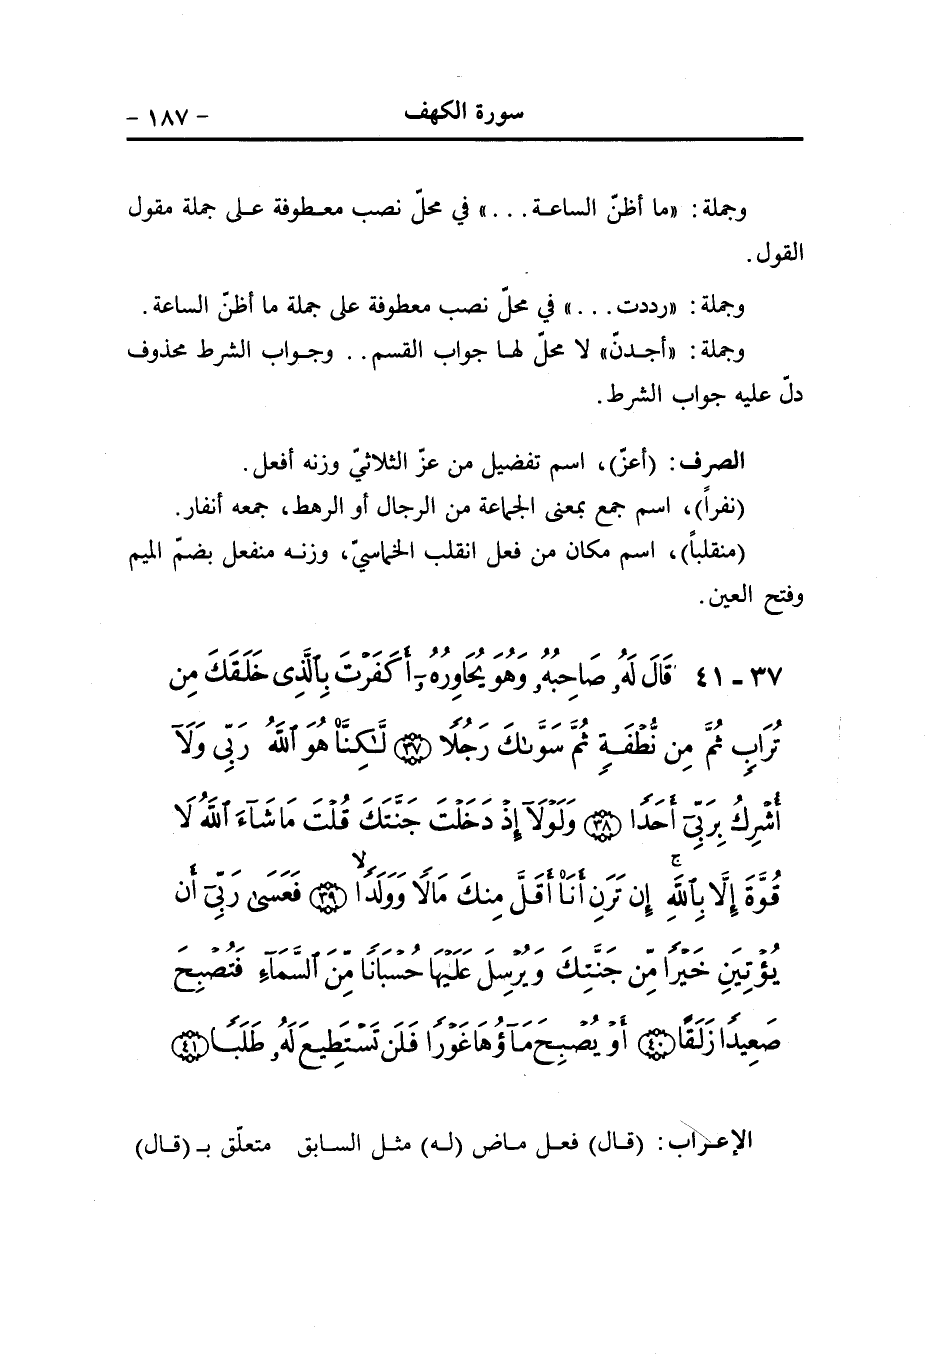 سورة الكهف - ١٨٧ -
وجملة: «ما أظنّ الساعـة...» في محلّ نصب معـطوفة عـلى جملة مقول
القول.
وجملة: «رددت...» في محلّ نصب معطوفة على جملة ما أظنّ الساعة.
وجملة: «أجـدنّ» لا محلّ لهـا جواب القسم.. وجـواب الشرط محذوف
دلّ عليه جواب الشرط.
الصرف: (أعزّ)، اسم تفضيل من عزّ الثلاثيّ وزنه أفعل.
(نفراً)، اسم جمع بمعنى الجماعة من الرجال أو الرهط، جمعه أنفار.
(منقلباً)، اسم مكان من فعل انقلب الخماسيّ، وزنـه منفعل بضمّ الميم
وفتح العين.
٣٧ - ٤١ قَالَ لَهُۥ صَاحِبُهُۥ وَهُوَ يُحَاوِرُهُۥٓ أَكَفَرْتَ بِٱلَّذِى خَلَقَكَ مِن
تُرَابٍ ثُمَّ مِن نُّطْفَةٍ ثُمَّ سَوَّىٰكَ رَجُلًا ﴿٣٧﴾ لَّـٰكِنَّا۠ هُوَ ٱللَّهُ رَبِّى وَلَآ
أُشْرِكُ بِرَبِّىٓ أَحَدًا ﴿٣٨﴾ وَلَوْلَآ إِذْ دَخَلْتَ جَنَّتَكَ قُلْتَ مَا شَآءَ ٱللَّهُ لَا
قُوَّةَ إِلَّا بِٱللَّهِ ۚ إِن تَرَنِ أَنَا۠ أَقَلَّ مِنكَ مَالًا وَوَلَدًا ۙ ﴿٣٩﴾ فَعَسَىٰ رَبِّىٓ أَن
يُؤْتِيَنِ خَيْرًا مِّن جَنَّتِكَ وَيُرْسِلَ عَلَيْهَا حُسْبَانًا مِّنَ ٱلسَّمَآءِ فَتُصْبِحَ
صَعِيدًا زَلَقًا ﴿٤٠﴾ أَوْ يُصْبِحَ مَآؤُهَا غَوْرًا فَلَن تَسْتَطِيعَ لَهُۥ طَلَبًا ﴿٤١﴾
الإعـراب: (قـال) فعـل مـاض (لـه) مثـل السـابق متعلّق بـ (قـال)